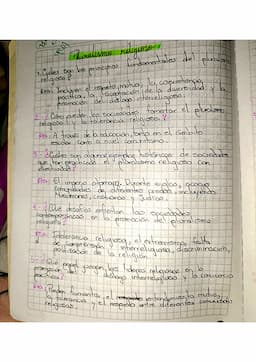 Pluralismo religioso
1-¿Cuáles son los principios fundamentales del pluralismo
religioso?
Rta: Incluyen el respeto mutuo, la coexistencia
pacífica, la aceptación de la diversidad y la
promoción del diálogo interreligioso.
2-¿Cómo pueden las sociedades fomentar el pluralismo
religioso y la tolerancia religiosa?
Rta: A través de la educación, tanto en el ámbito
escolar como a nivel comunitario.
3-¿Cuáles son algunos ejemplos históricos de sociedades
que han practicado el pluralismo religioso con
Rta: El imperio otomano. Durante siglos, acogió
comunidades de diferentes incluyendo
musulmanes, cristianos y judíos.
4-¿Qué desafíos enfrentan las sociedades
contemporáneas en la promoción del pluralismo
religioso?
Rta: Intolerancia religiosa, el extremismo, falta
de comprensión interreligiosa, discriminación,
de la religión.
5-¿Qué papel juegan los líderes religiosos en la
promoción del diálogo interreligioso y la convivencia
pacífica?
Rta: Pueden fomentar el entendimiento mutuo,
la tolerancia y el respeto entre diferentes comunidades
religiosas.